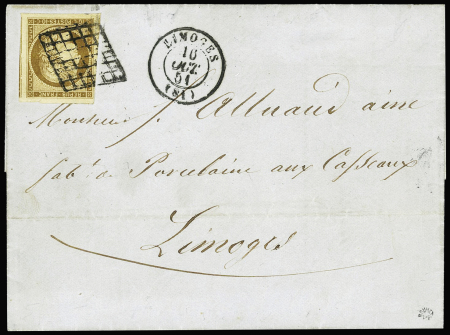 LIMOGES
16
OCT.
51
(81)
Monsieur J. Alluaud ainé
fabt. de Porcelaine aux Casseaux
Limoges